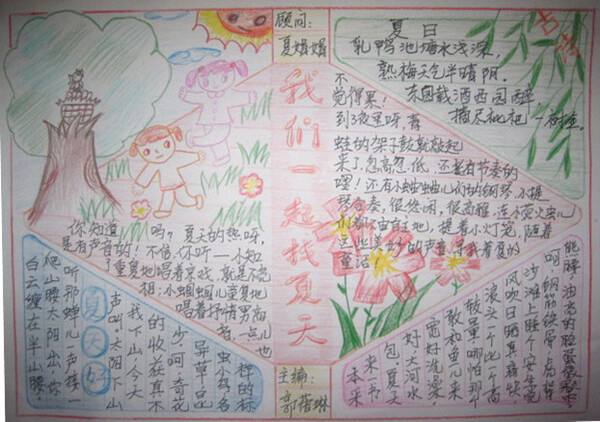 顾问:
夏娟娟
我们一起找夏天
主编:
郭蓓琳
夏日
古诗
乳鸭池塘水浅深，
熟梅天气半晴阴。
东园载酒西园醉，
摘尽枇杷一树金。
你知道 吗？夏天的热呀，
是有声音的！不信，你听一小知
了重复地唱着京戏，就是不觉
相；小蝈蝈儿重复地
唱着抒情男高
音，一点儿也
不
觉得累！
到了夜里呀，青
蛙的架子鼓就敲起
来了，忽高忽低，还蛮有节奏的
嘿！还有小蛐蛐儿们的钢琴、小提
琴合奏，很悠闲，很高雅，连小萤火虫儿
提着小灯笼，随着
这些美妙的声音，寻找着夏的
童话！
夏天好
白云缠在半山腰。
爬山腰太阳出，你
听那蝉儿声声一
声叫，太阳下山
我下山，今天
的收获真不
少呵，奇花
异草品
虫小鸟，名
样的标
本采
来一书
包。夏天
好，大河水
面好洗澡，
敢和鱼儿来
较量，哪怕那个
浪头一个比一个高，
风吹日晒真痛快，
沙滩上睡个安生觉